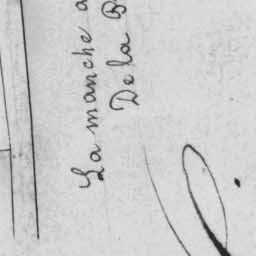 La manche
De la